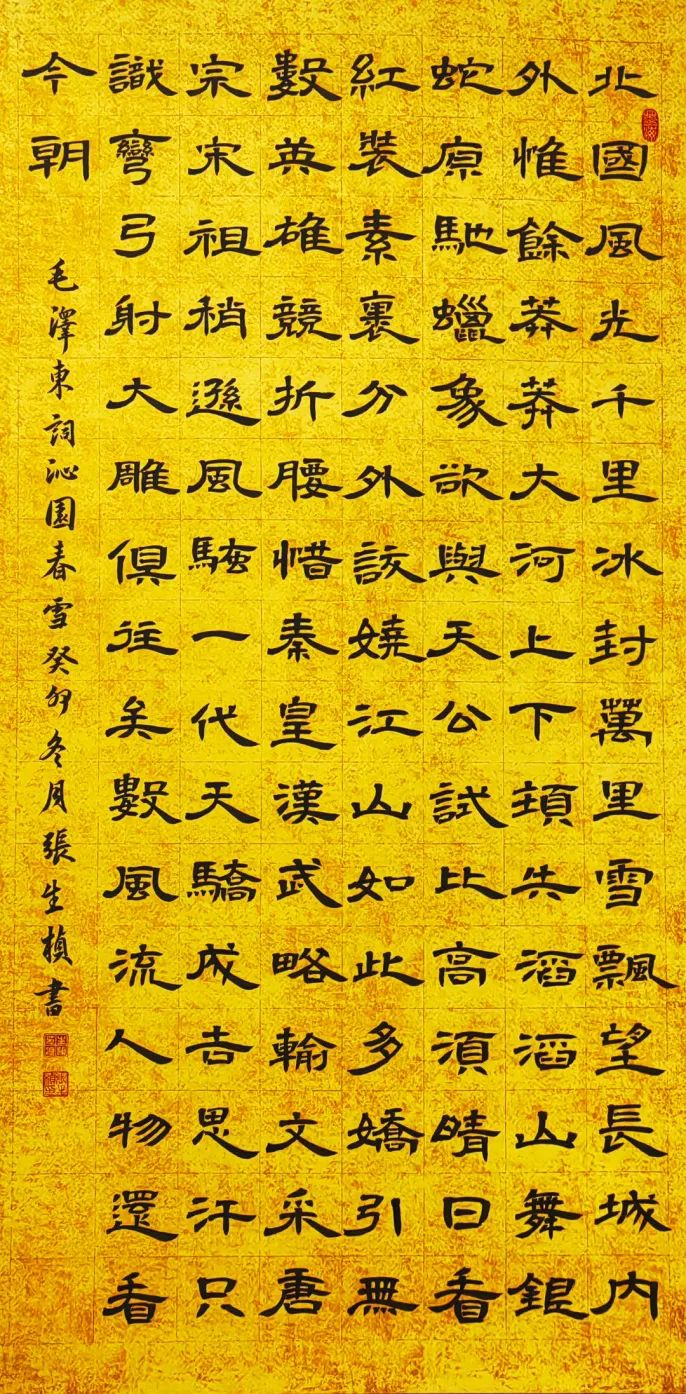 北國風光千里冰封萬里雪飄望長城內
外惟餘莽莽大河上下頓失滔滔山舞銀
蛇原馳蠟象欲與天公試比高須晴日看
紅裝素裹分外該嬈江山如此多嬌引無
數英雄競折腰惜秦皇漢武略輸文采唐
宗宋祖稍遜風騷一代天驕成吉思汗只
識彎弓射大雕俱往矣數風流人物還看
今朝
毛澤東詞沁園春雪癸卯冬月張生楨書